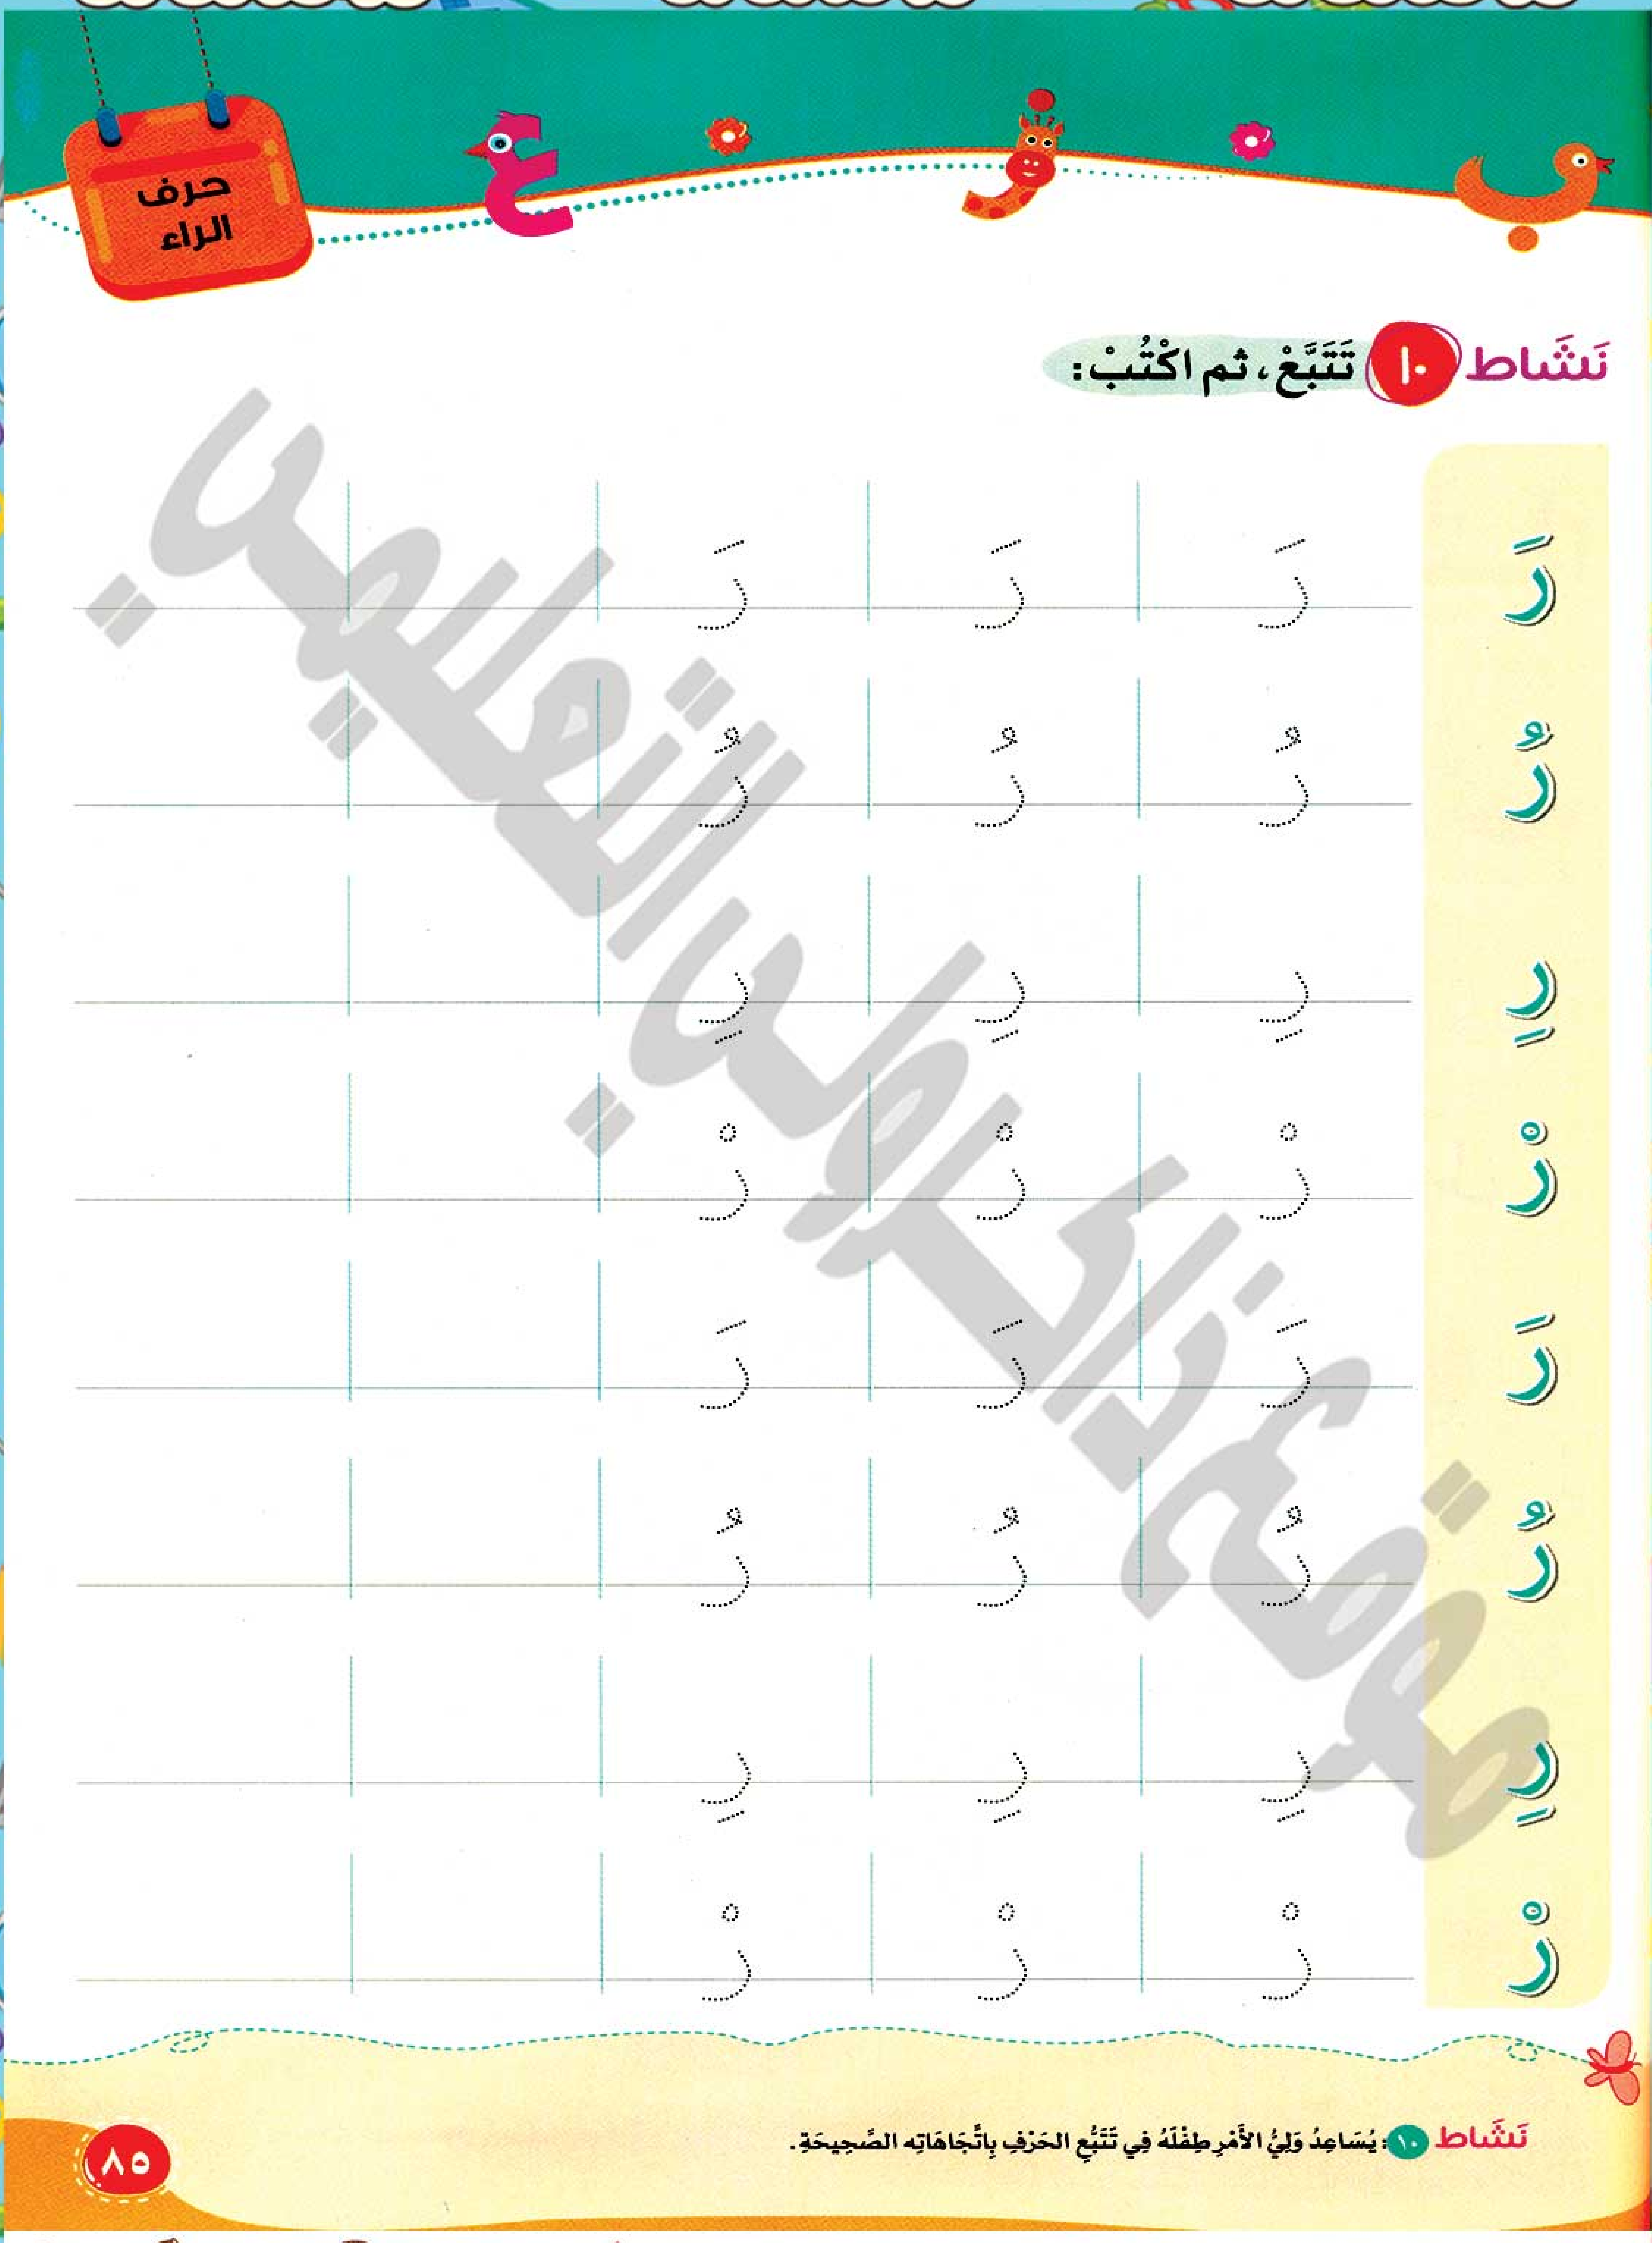 حرف
الراء
نَشَاط ١٠ تَتَبَّعْ، ثم اكْتُبْ:
رَ رَ رَ رَ
رُ رُ رُ رُ
رِ رِ رِ رِ
رْ رْ رْ رْ
رَ رَ رَ رَ
رُ رُ رُ رُ
رِ رِ رِ رِ
رْ رْ رْ رْ
موقع ذاكرولي التعليمي
نَشَاط ١٠: يُسَاعِدُ وَلِيُّ الأَمْرِ طِفْلَهُ فِي تَتَبُّعِ الحَرْفِ بِاتِّجَاهَاتِه الصَّحِيحَةِ.
٨٥